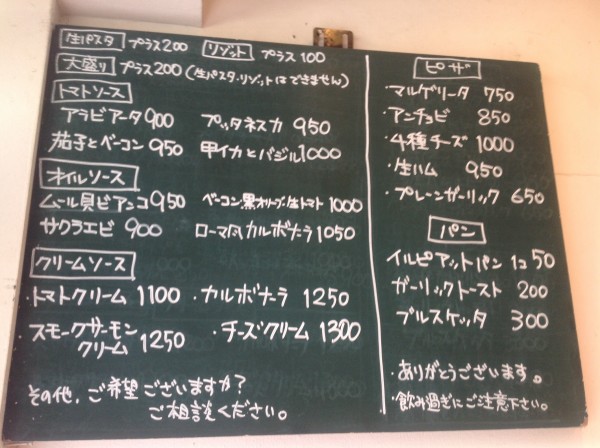 生パスタ プラス200 リゾット プラス100
大盛り プラス200(生パスタ・リゾットはできません)
トマトソース
アラビアータ900 プッタネスカ 950
茄子とベーコン950 甲イカとバジル1000
オイルソース
ムール貝ビアンコ950 ベーコン、黒オリーブ・生トマト 1000
サクラエビ 900 ローマ風カルボナーラ1050
クリームソース
・トマトクリーム 1100 ・カルボナーラ 1250
・スモークサーモンクリーム 1250 ・チーズクリーム 1300
その他、ご希望ございますか?
ご相談ください。
ピザ
・マルゲリータ 750
・アンチョビ 850
・4種チーズ 1000
・生ハム 950
・プレーンガーリック 650
パン
・イルピアットパン 1コ50
・ガーリックトースト 200
・ブルスケッタ 300
・ありがとうございます。
・飲み過ぎにご注意下さい。